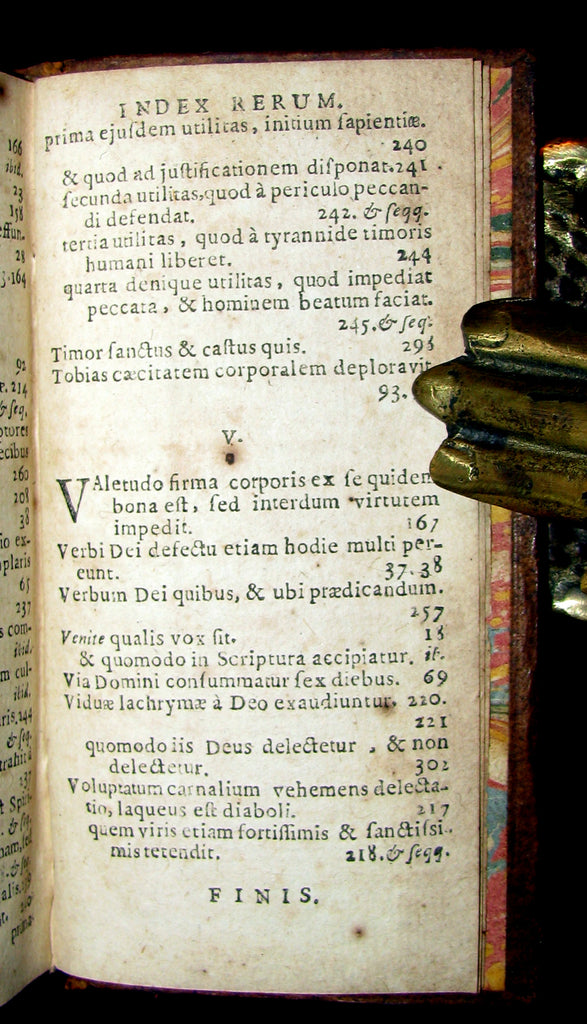 166
ibid.
23
158
effun-
28
3.164
92
P. 214
& seq.
ptores
ecibus
260
208
38
io ex-
plaris
65
237
s com-
ibid.
m cul-
ibid.
ris.244
& seq.
237
& seq.
prima
INDEX RERUM.
prima ejuſdem utilitas, initium ſapientiæ.
240
& quod ad juſtificationem diſponat. 241
ſecunda utilitas, quod à periculo peccan-
di defendat. 242. & ſeqq.
tertia utilitas, quod à tyrannide timoris
humani liberet. 244
quarta denique utilitas, quod impediat
peccata, & hominem beatum faciat.
245. & ſeq.
Timor ſanctus & caſtus quis. 293
Tobias cæcitatem corporalem deploravit
93.
V.
VAletudo firma corporis ex ſe quidem
bona eſt, ſed interdum virtutem
impedit. 167
Verbi Dei defectu etiam hodie multi per-
eunt. 37. 38
Verbum Dei quibus, & ubi prædicandum.
257
Venite qualis vox ſit. 18
& quomodo in Scriptura accipiatur. ib.
Via Domini conſummatur ſex diebus. 69
Viduæ lachrymæ à Deo exaudiuntur. 220.
221
quomodo iis Deus delectetur, & non
delectetur. 302
Voluptatum carnalium vehemens delecta-
tio, laqueus eſt diaboli. 217
quem viris etiam fortiſſimis & ſanctiſſi-
mis tetendit. 218. & ſeqq.
FINIS.